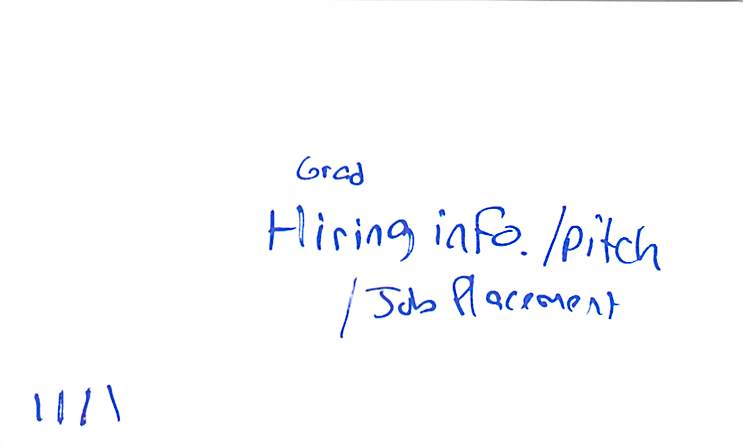 Grad
Hiring info. /pitch
/Job Placement
||||